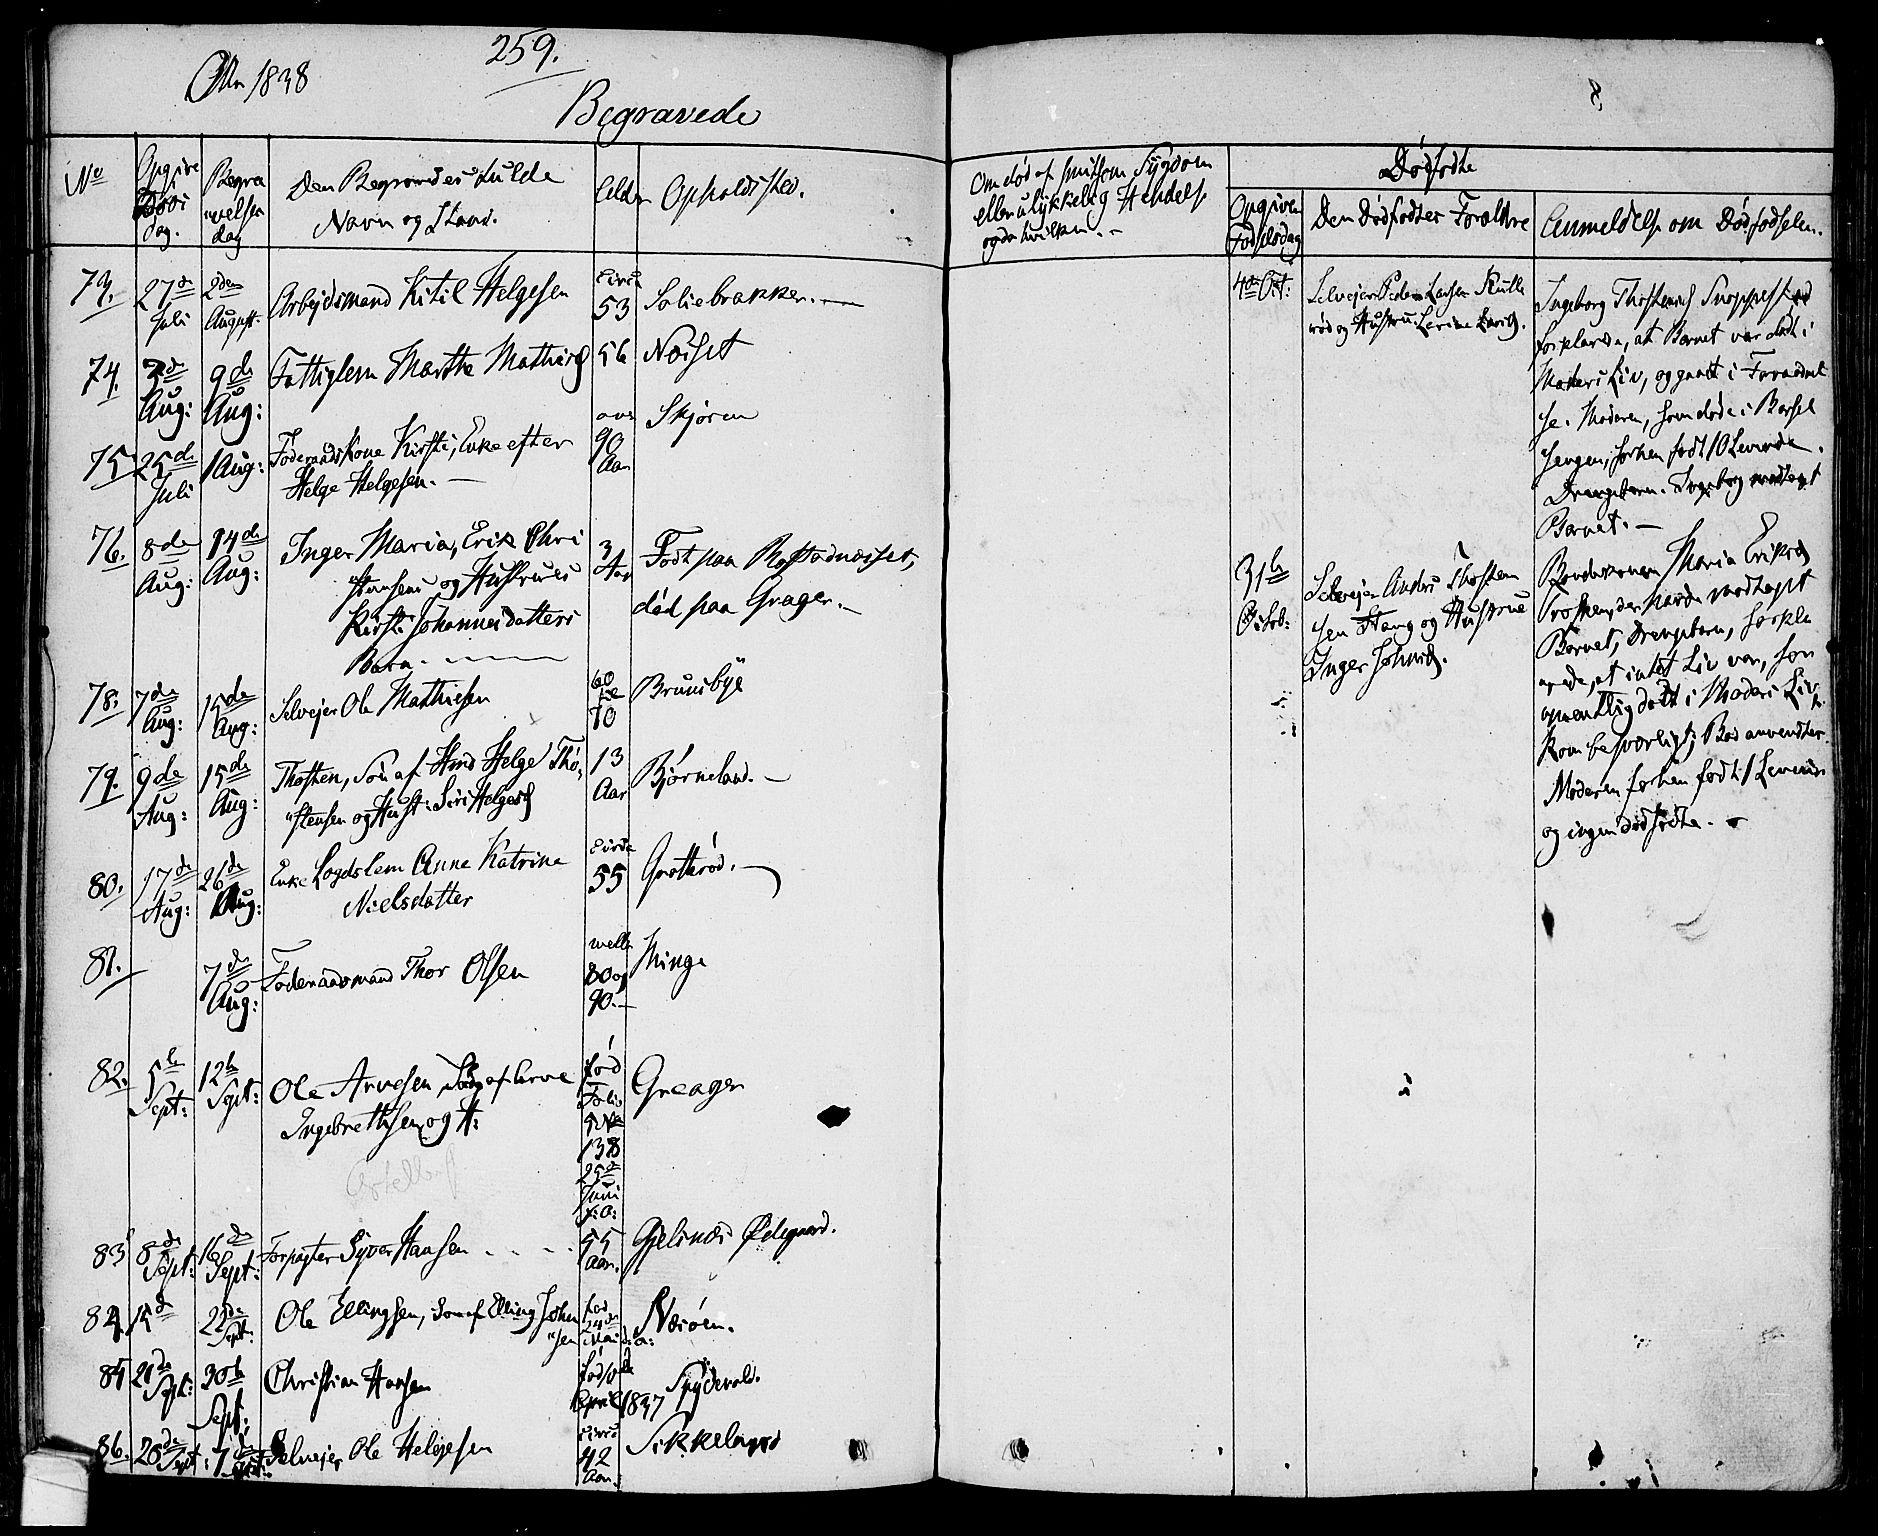 259.
Ao 1838
Begravede
No
Opgive Døds dag.
Begra velses dag
Den Begravedes fulde
Navn og Stand.
Alder
Opholdssted.
73. 27de Juli 2den August. Arbejdsmand Kitil Helgesen circa 53 Soliebrækken.
74. 3de Aug: 9de Aug: Fattiglem Marthe Mathisd 56 Næiset
75 25de Juli 1 Aug: Føderaadskone Kirsti, Enke efter
Helge Helgesen. over 90 Aar Skjøren
76. 8de Aug: 14de Aug: Inger Maria, Erik Chri
stensens og Hustrues
Kirsti Johannesdatters
Barn. 3 Aar Født paa Rostadnæiset,
død paa Grager.
78. 7de Aug: 15de Aug: Selvejer Ole Mathiesen 60 70 Brunsbye
79. 9de Aug: 15de Aug: Thosten, Søn af Hmd Helge Tho
stensen og Hust: Siri Helgesd 13 Aar Bjørneland.
80. 17de Aug: 26de Aug: Enke Lægdslem Anne Katrine
Nielsdatter circa 55 Grøtterød.
81. 7de Aug: Føderaadsmand Thor Olsen mell 80 og 90. Minge
82. 5te Sept: 12te Sept: Ole Arvesen Søn af Arve
Ingebrethsen og H: fød Folio 138 25de Juni Greager
83 8de Sept: 16de Sept: Forpagter Syver Hansen 55 Aar. Gjelsnæs Ødegaard.
84 22de Sept: Ole Ellingsen, Søn af Elling John
sen fød 24de Mai d: a: Næsøen.
85 21de Sept: 30te Sept: Christian Hansen fød April 1837 Spydevold.
86. 28de Sept: 7de Selvejer Ole Helgesen circa 42 Aar.
Om død af smitsom Sygdom
eller ulykkelig Hendelse
og da hvilken.
Dødfødte
Opgiven Fødselsdag
Den Dødfødtes Forældre
Anmeldelse om Dødfødselen.
4de Oct: Selvejer Peder Larsen Kulle
rød og Hustru
Ingeborg Thostensd
forklarede, at Barnet var dødt i
Moders Liv, og gaaet i Foraadnel
se. Moderen, som døde i Barsel
sengen, forhen født 10 Levende.
Drengebarn. Ingeborg modtaget
Barnet.
31te Octob: Selvejer Anders Thosten
sen Haug og Hustrue
Inger Johnsd.
Bondekonen Maria Eriksd
der havde modtaget
Barnet, Drengebarn, forkla
rede, at intet Liv var, for
mentlig dødt i Moders Liv,
kom besværligt; Bad anvendtes.
Moderen forhen født 1 Levende
og ingen dødfødte.